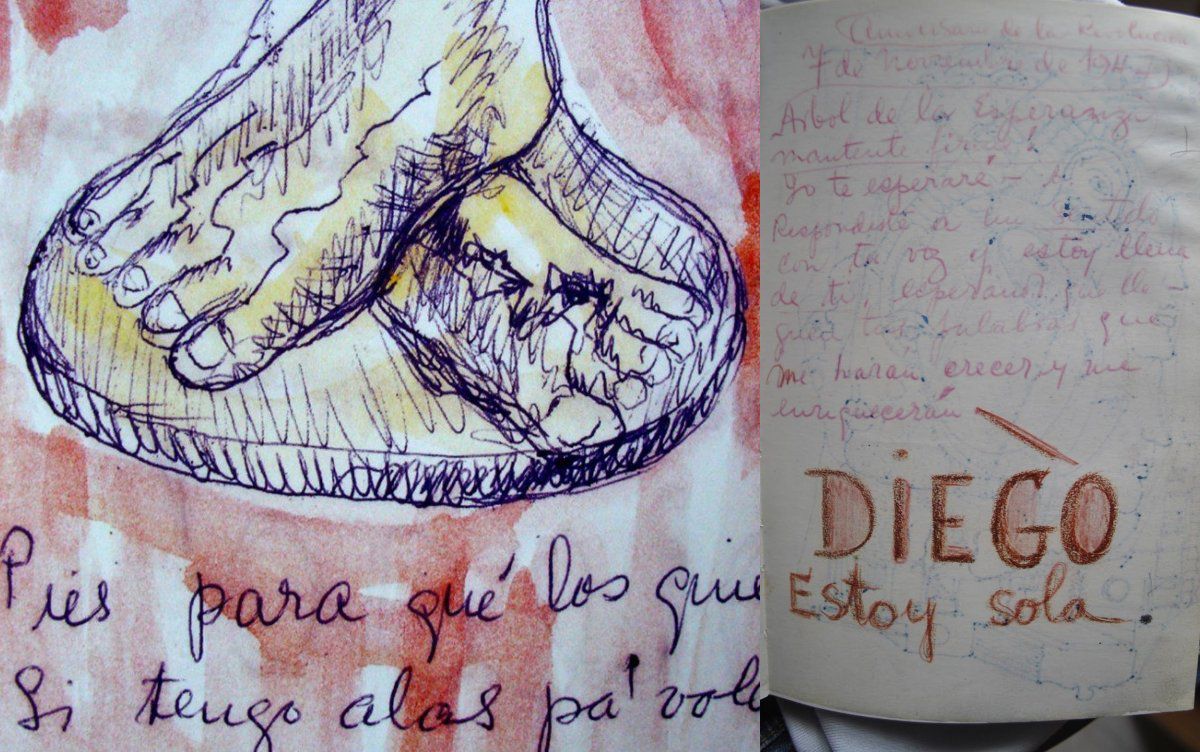 Pies para qué los quie
Si tengo alas pa' vola
Aniversario de la Revolucion
7 de Noviembre de 1947
Arbol de la Esperanza
mantente firme!
Yo te esperaré –
Respondiste a un sentido
con tu voz y estoy llena
de ti, esperando que lle –
guen tus palabras que
me harán crecer y me
enriquecerán
DIEGO
Estoy sola.